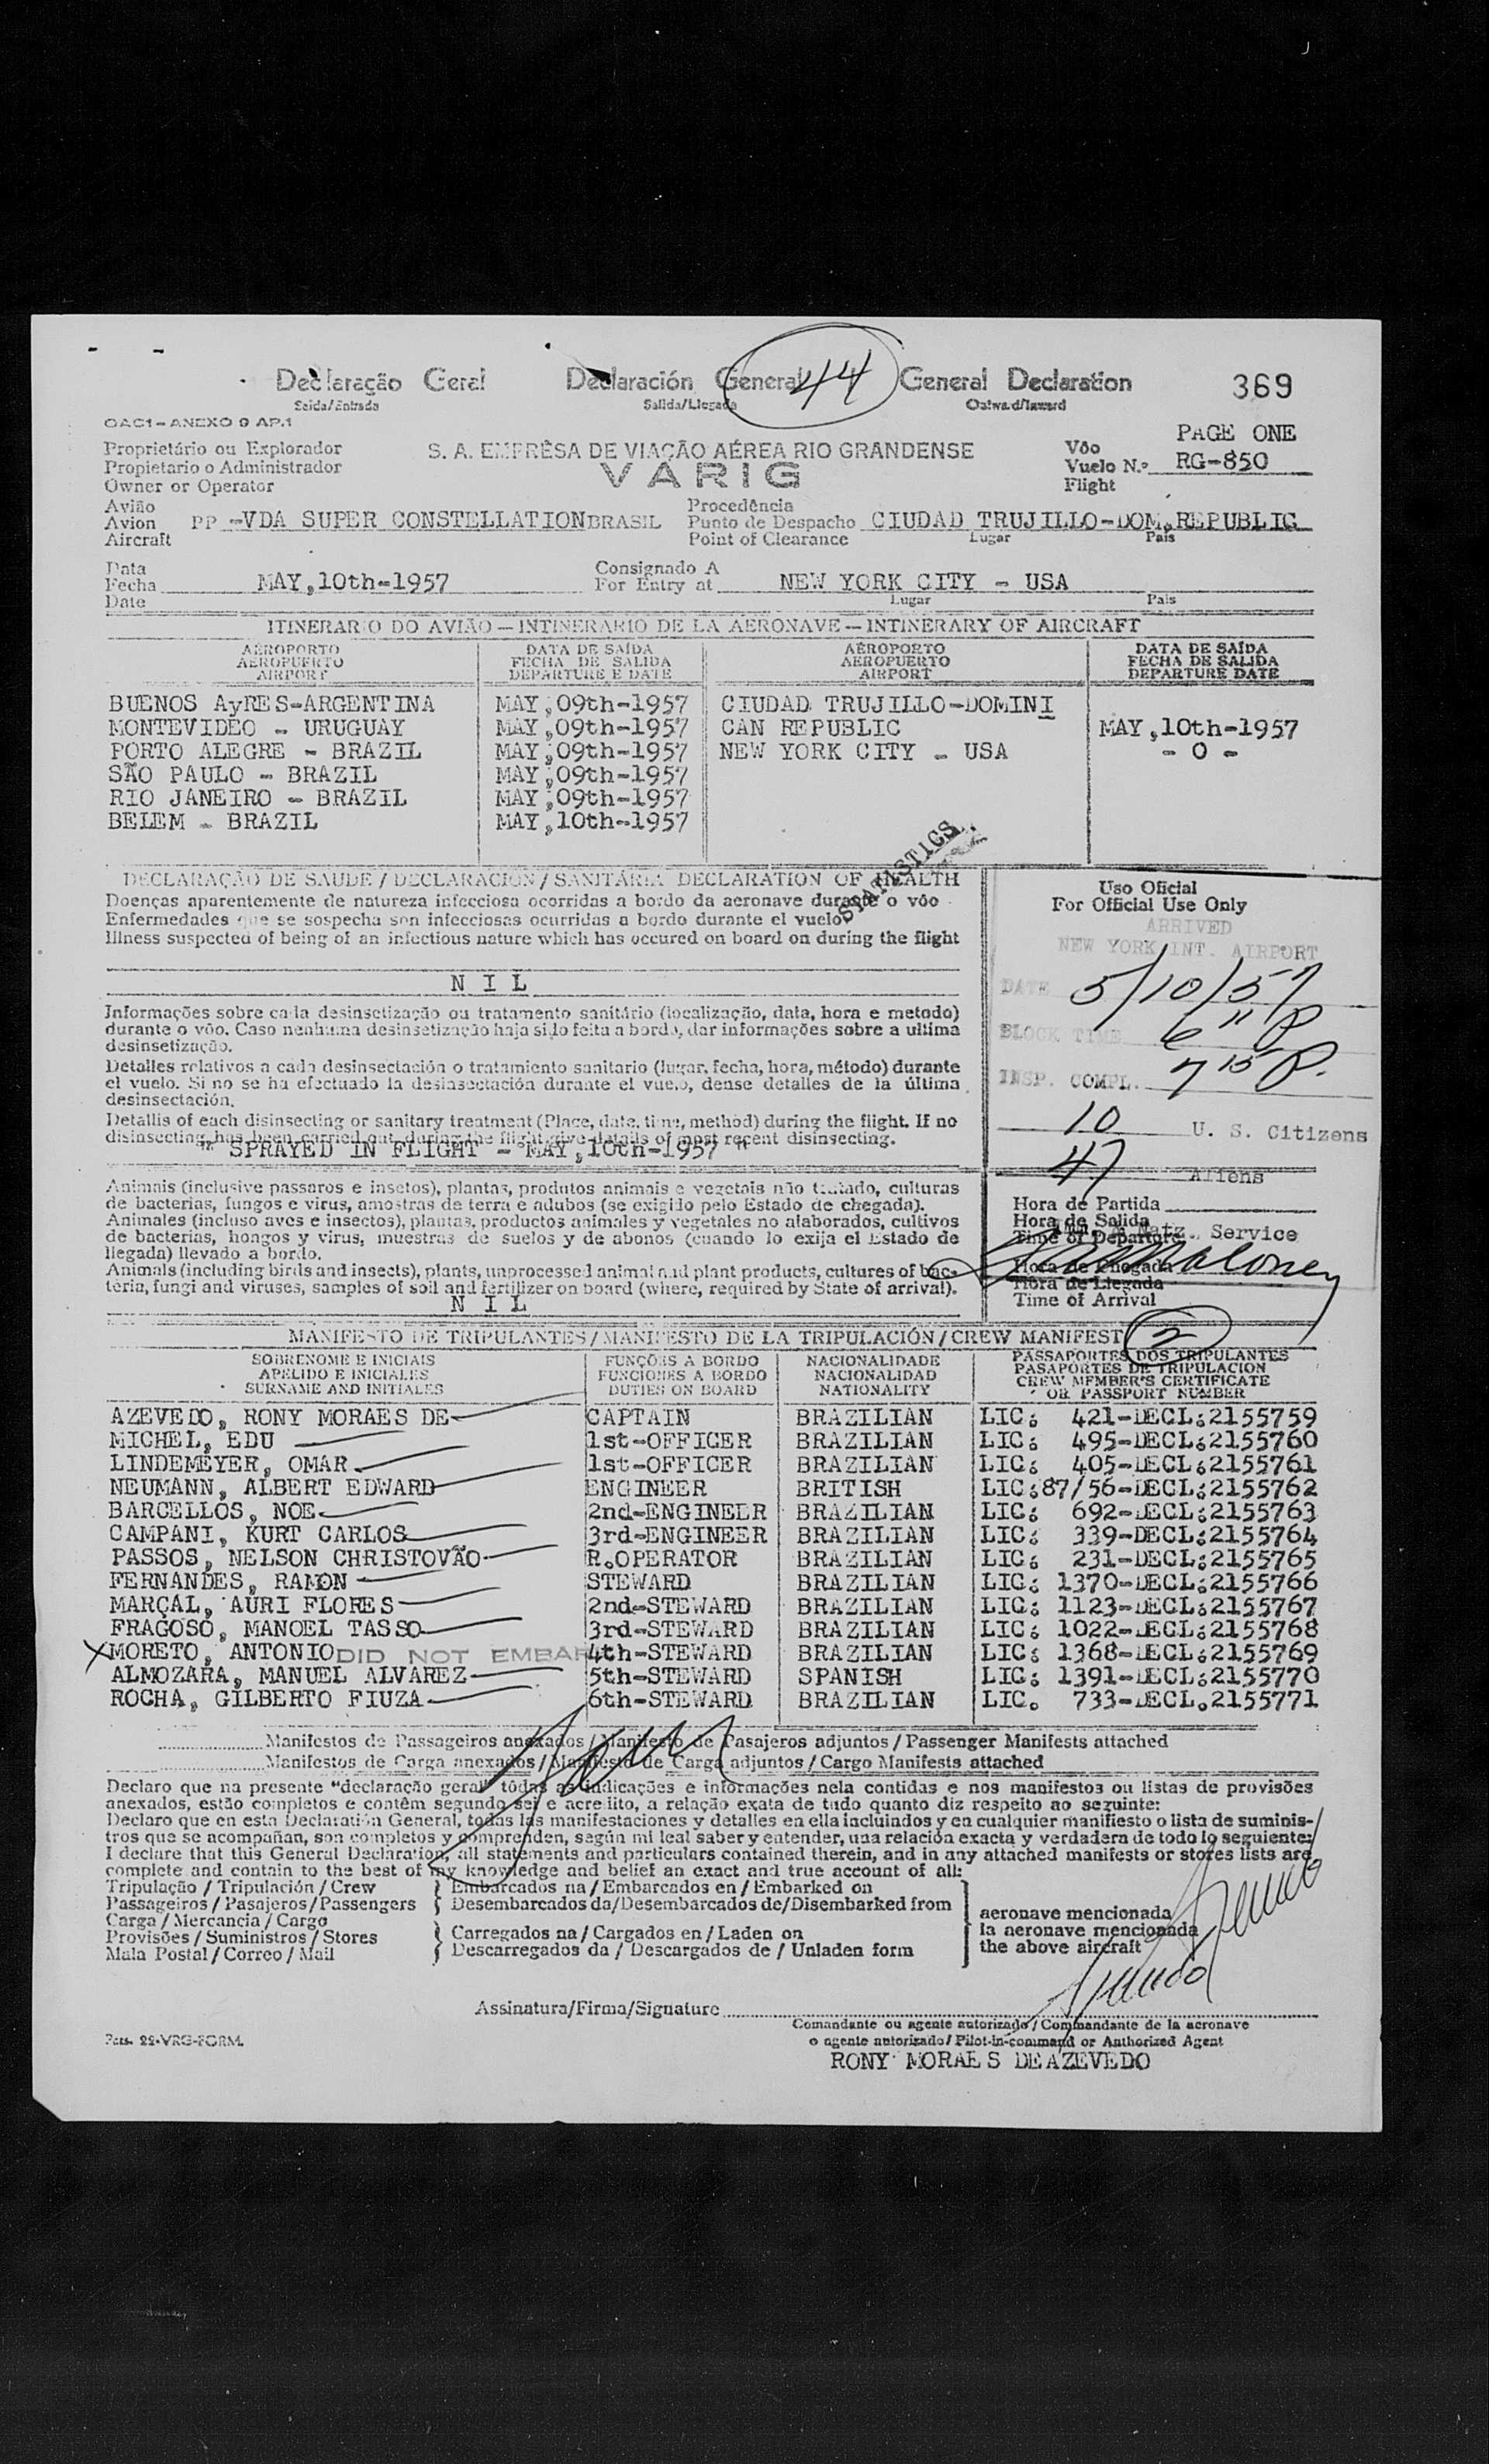 Declaração Geral Declaración General 44 General Declaration 369
Saida/Entrada Salida/Llegada Outward/Inward
OACI - ANEXO 9 AP.1
PAGE ONE
Proprietário ou Explorador
Propietario o Administrador
Owner or Operator
S. A. EMPRÊSA DE VIAÇÃO AÉREA RIO GRANDENSE
VARIG
Vôo
Vuelo N.º RG-850
Flight
Avião
Avion PP -VDA SUPER CONSTELLATION BRASIL
Aircraft
Procedência
Punto de Despacho CIUDAD TRUJILLO-DOM.REPUBLIC
Point of Clearance Lugar Pais
Data
Fecha MAY,10th-1957
Date
Consignado A
For Entry at NEW YORK CITY - USA
Lugar Pais
ITINERARIO DO AVIÃO — INTINERARIO DE LA AERONAVE — INTINERARY OF AIRCRAFT
AEROPORTO DATA DE SAÍDA AEROPORTO DATA DE SAÍDA
AEROPUERTO FECHA DE SALIDA AEROPUERTO FECHA DE SALIDA
AIRPORT DEPARTURE E DATE AIRPORT DEPARTURE DATE
BUENOS AyRES-ARGENTINA MAY,09th-1957 CIUDAD TRUJILLO-DOMINI
MONTEVIDEO - URUGUAY MAY,09th-1957 CAN REPUBLIC MAY,10th-1957
PORTO ALEGRE - BRAZIL MAY,09th-1957 NEW YORK CITY - USA - 0 -
SÃO PAULO - BRAZIL MAY,09th-1957
RIO JANEIRO - BRAZIL MAY,09th-1957
BELEM - BRAZIL MAY,10th-1957
STATISTICS
DECLARAÇÃO DE SAUDE / DECLARACION / SANITÁRIA DECLARATION OF HEALTH
Doenças aparentemente de natureza infecciosa ocorridas a bordo da aeronave durante o vôo
Enfermedades que se sospecha son infecciosas ocurridas a bordo durante el vuelo
Illness suspected of being of an infectious nature which has occured on board on during the flight
N I L
Informações sobre cada desinsetização ou tratamento sanitário (localização, data, hora e metodo)
durante o vôo. Caso nenhuma desinsetização haja sido feita a bordo, dar informações sobre a ultima
desinsetização.
Detalles relativos a cada desinsectación o tratamiento sanitario (lugar, fecha, hora, método) durante
el vuelo. Si no se ha efectuado la desinsectación durante el vuelo, dense detalles de la última
desinsectación.
Detallis of each disinsecting or sanitary treatment (Place, date, time, method) during the flight. If no
disinsecting has been carried out during the flight give details of most recent disinsecting.
" SPRAYED IN FLIGHT - MAY,10th-1957 "
Animais (inclusive passaros e insetos), plantas, produtos animais e vegetais não tratado, culturas
de bacterias, fungos e virus, amostras de terra e adubos (se exigido pelo Estado de chegada).
Animales (incluso aves e insectos), plantas, productos animales y vegetales no alaborados, cultivos
de bacterias, hongos y virus, muestras de suelos y de abonos (cuando lo exija el Estado de
llegada) llevado a bordo.
Animals (including birds and insects), plants, unprocessed animal and plant products, cultures of bac-
teria, fungi and viruses, samples of soil and fertilizer on board (where, required by State of arrival).
N I L
Uso Oficial
For Official Use Only
ARRIVED
NEW YORK INT. AIRPORT
DATE 5/10/57
BLOCK TIME 6 11 P
INSP. COMPL. 7 15 P.
10 U. S. Citizens
47 Aliens
Hora de Partida
Hora de Salida
Time of Departure
Imm. & Natz. Service
Hora de Chegada
Hora de Llegada
Time of Arrival
MANIFESTO DE TRIPULANTES / MANIFESTO DE LA TRIPULACIÓN / CREW MANIFEST 2
SOBRENOME E INICIAIS FUNÇÕES A BORDO NACIONALIDADE PASSAPORTES DOS TRIPULANTES
APELIDO E INICIALES FUNCIONES A BORDO NACIONALIDAD PASAPORTES DE TRIPULACION
SURNAME AND INITIALES DUTIES ON BOARD NATIONALITY CREW MEMBER'S CERTIFICATE
OR PASSPORT NUMBER
AZEVEDO, RONY MORAES DE CAPTAIN BRAZILIAN LIC: 421-DECL:2155759
MICHEL, EDU 1st-OFFICER BRAZILIAN LIC: 495-DECL:2155760
LINDEMEYER, OMAR 1st-OFFICER BRAZILIAN LIC: 405-DECL:2155761
NEUMANN, ALBERT EDWARD ENGINEER BRITISH LIC:87/56-DECL:2155762
BARCELLOS, NOE 2nd-ENGINEER BRAZILIAN LIC: 692-DECL:2155763
CAMPANI, KURT CARLOS 3rd-ENGINEER BRAZILIAN LIC: 339-DECL:2155764
PASSOS, NELSON CHRISTOVÃO R.OPERATOR BRAZILIAN LIC: 231-DECL:2155765
FERNANDES, RAMON STEWARD BRAZILIAN LIC: 1370-DECL:2155766
MARÇAL, AURI FLORES 2nd-STEWARD BRAZILIAN LIC: 1123-DECL:2155767
FRAGOSO, MANOEL TASSO 3rd-STEWARD BRAZILIAN LIC: 1022-DECL:2155768
X MORETO, ANTONIO DID NOT EMBAR 4th-STEWARD BRAZILIAN LIC: 1368-DECL:2155769
ALMOZARA, MANUEL ALVAREZ 5th-STEWARD SPANISH LIC: 1391-DECL:2155770
ROCHA, GILBERTO FIUZA 6th-STEWARD BRAZILIAN LIC. 733-DECL.2155771
Manifestos de Passageiros anexados / Manifesto de Pasajeros adjuntos / Passenger Manifests attached
Manifestos de Carga anexados / Manifesto de Carga adjuntos / Cargo Manifests attached
Declaro que na presente "declaração geral" tôdas as indicações e informações nela contidas e nos manifestos ou listas de provisões
anexados, estão completos e contêm segundo sei e acredito, a relação exata de tudo quanto diz respeito ao seguinte:
Declaro que en esta Declaración General, todas las manifestaciones y detalles en ella incluidos y en cualquier manifiesto o lista de suminis-
tros que se acompañan, son completos y comprenden, según mi leal saber y entender, una relación exacta y verdadera de todo lo seguiente:
I declare that this General Declaration, all statements and particulars contained therein, and in any attached manifests or stores lists are
complete and contain to the best of my knowledge and belief an exact and true account of all:
Tripulação / Tripulación / Crew
Passageiros / Pasajeros / Passengers
Carga / Mercancia / Cargo
Provisões / Suministros / Stores
Mala Postal / Correo / Mail
Embarcados na / Embarcados en / Embarked on
Desembarcados da/Desembarcados de/Disembarked from
Carregados na / Cargados en / Laden on
Descarregados da / Descargados de / Unladen form
aeronave mencionada
la aeronave mencionada
the above aircraft
Assinatura/Firma/Signature
Comandante ou agente autorizado / Commandante de la aeronave
o agente autorizado / Pilot-in-command or Anthorized Agent
22-VRG-FORM.
RONY MORAES DE AZEVEDO